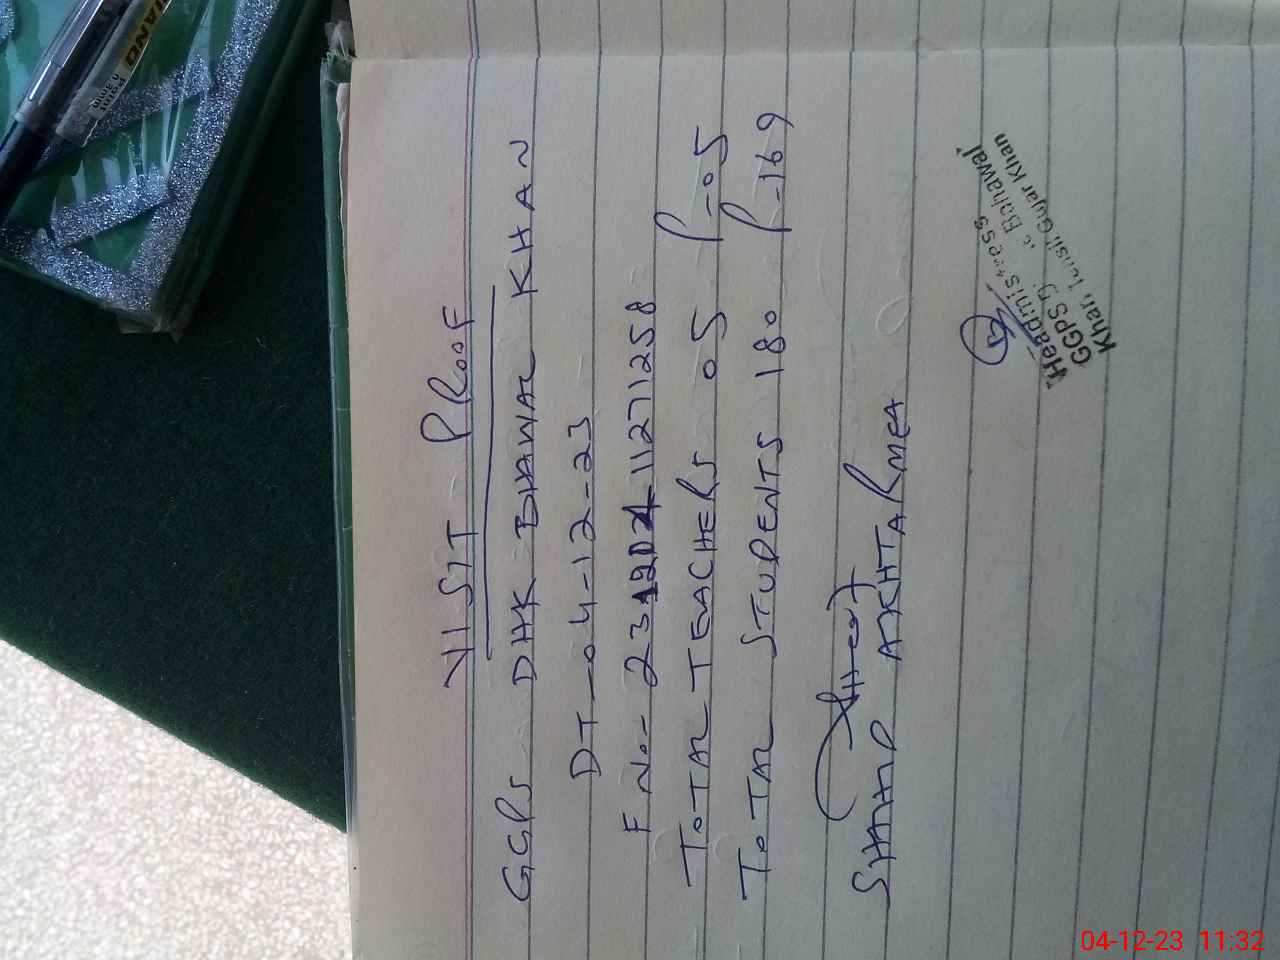 VIST PROOF
GGPS DHK BHAWAL KHAN
DT-04-12-23
F No- 11271258
TOTAL TEACHERS 05 P-05
TOTAL STUDENTS 180 P-169
SHAHID AKHTAR MEA
Headmistress
GGPS Bahawal
Khan Tehsil Gujar Khan
PIANO
04-12-23 11:32